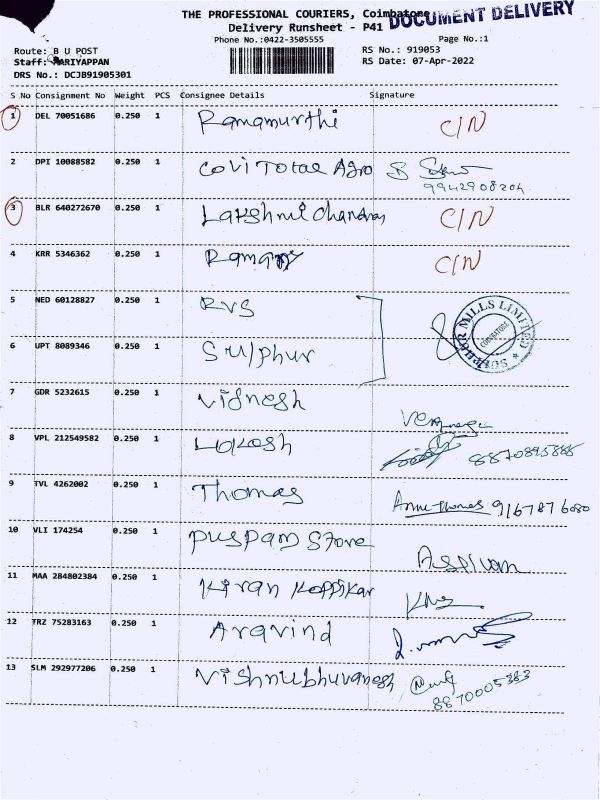 THE PROFESSIONAL COURIERS, Coimbatore
DOCUMENT DELIVERY
Delivery Runsheet - P41
Phone No.:0422-3505555
Page No.:1
Route: B U POST
RS No.: 919053
Staff: MARIYAPPAN
RS Date: 07-Apr-2022
DRS No.: DCJB91905301
S No Consignment No Weight PCS Consignee Details Signature
1 DEL 70051686 0.250 1 Ramamurthi C/N
2 DPI 10088582 0.250 1 Covi Total Agro
9942908204
3 BLR 640272670 0.250 1 Lakshmi Chandran C/N
4 KRR 5346362 0.250 1 C/N
5 NED 60128827 0.250 1 RVS
SULPHUR MILLS LIMITED COIMBATORE
6 UPT 8089346 0.250 1 Sulphur
7 GDR 5232615 0.250 1 Vignesh
8 VPL 212549582 0.250 1 Lokesh
9 TVL 4262002 0.250 1 Thomas Anne Thomas 9167876080
10 VLI 174254 0.250 1 Puspam Store
11 MAA 284802384 0.250 1 Kiran Koppikar
12 TRZ 75283163 0.250 1 Aravind
13 SLM 292977206 0.250 1 Vishnubhuvanesh
8870005383